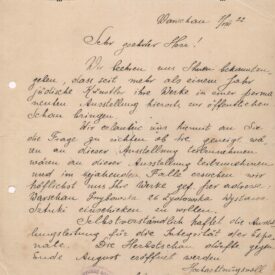 Warschau
Sehr geehrter Herr!
Wir beehren uns Ihnen bekanntzu-
geben, dass seit mehr als einem Jahr
jüdische Künstler ihre Werke in einer perma-
nenten Ausstellung hierorts zur öffentlichen
Schau bringen.
Wir erlauben uns hiemit an Sie
die Frage zu richten ob Sie geneigt wä-
ren an dieser Ausstellung teilzunehmen
wären an dieser Ausstellung teilzunehmen
und im bejahenden Falle ersuchen wir
höflichst uns Ihre Werke per Adresse
Warschau Grzybowska 26 Żydowska Wystawa
Sztuki einschicken zu wollen.
Selbstverständlich haftet die Ausstel-
lungsleitung für die Integrität der Expo-
nate. Die Herbstschau dürfte gegen
Ende August eröffnet werden
Hochachtungsvoll